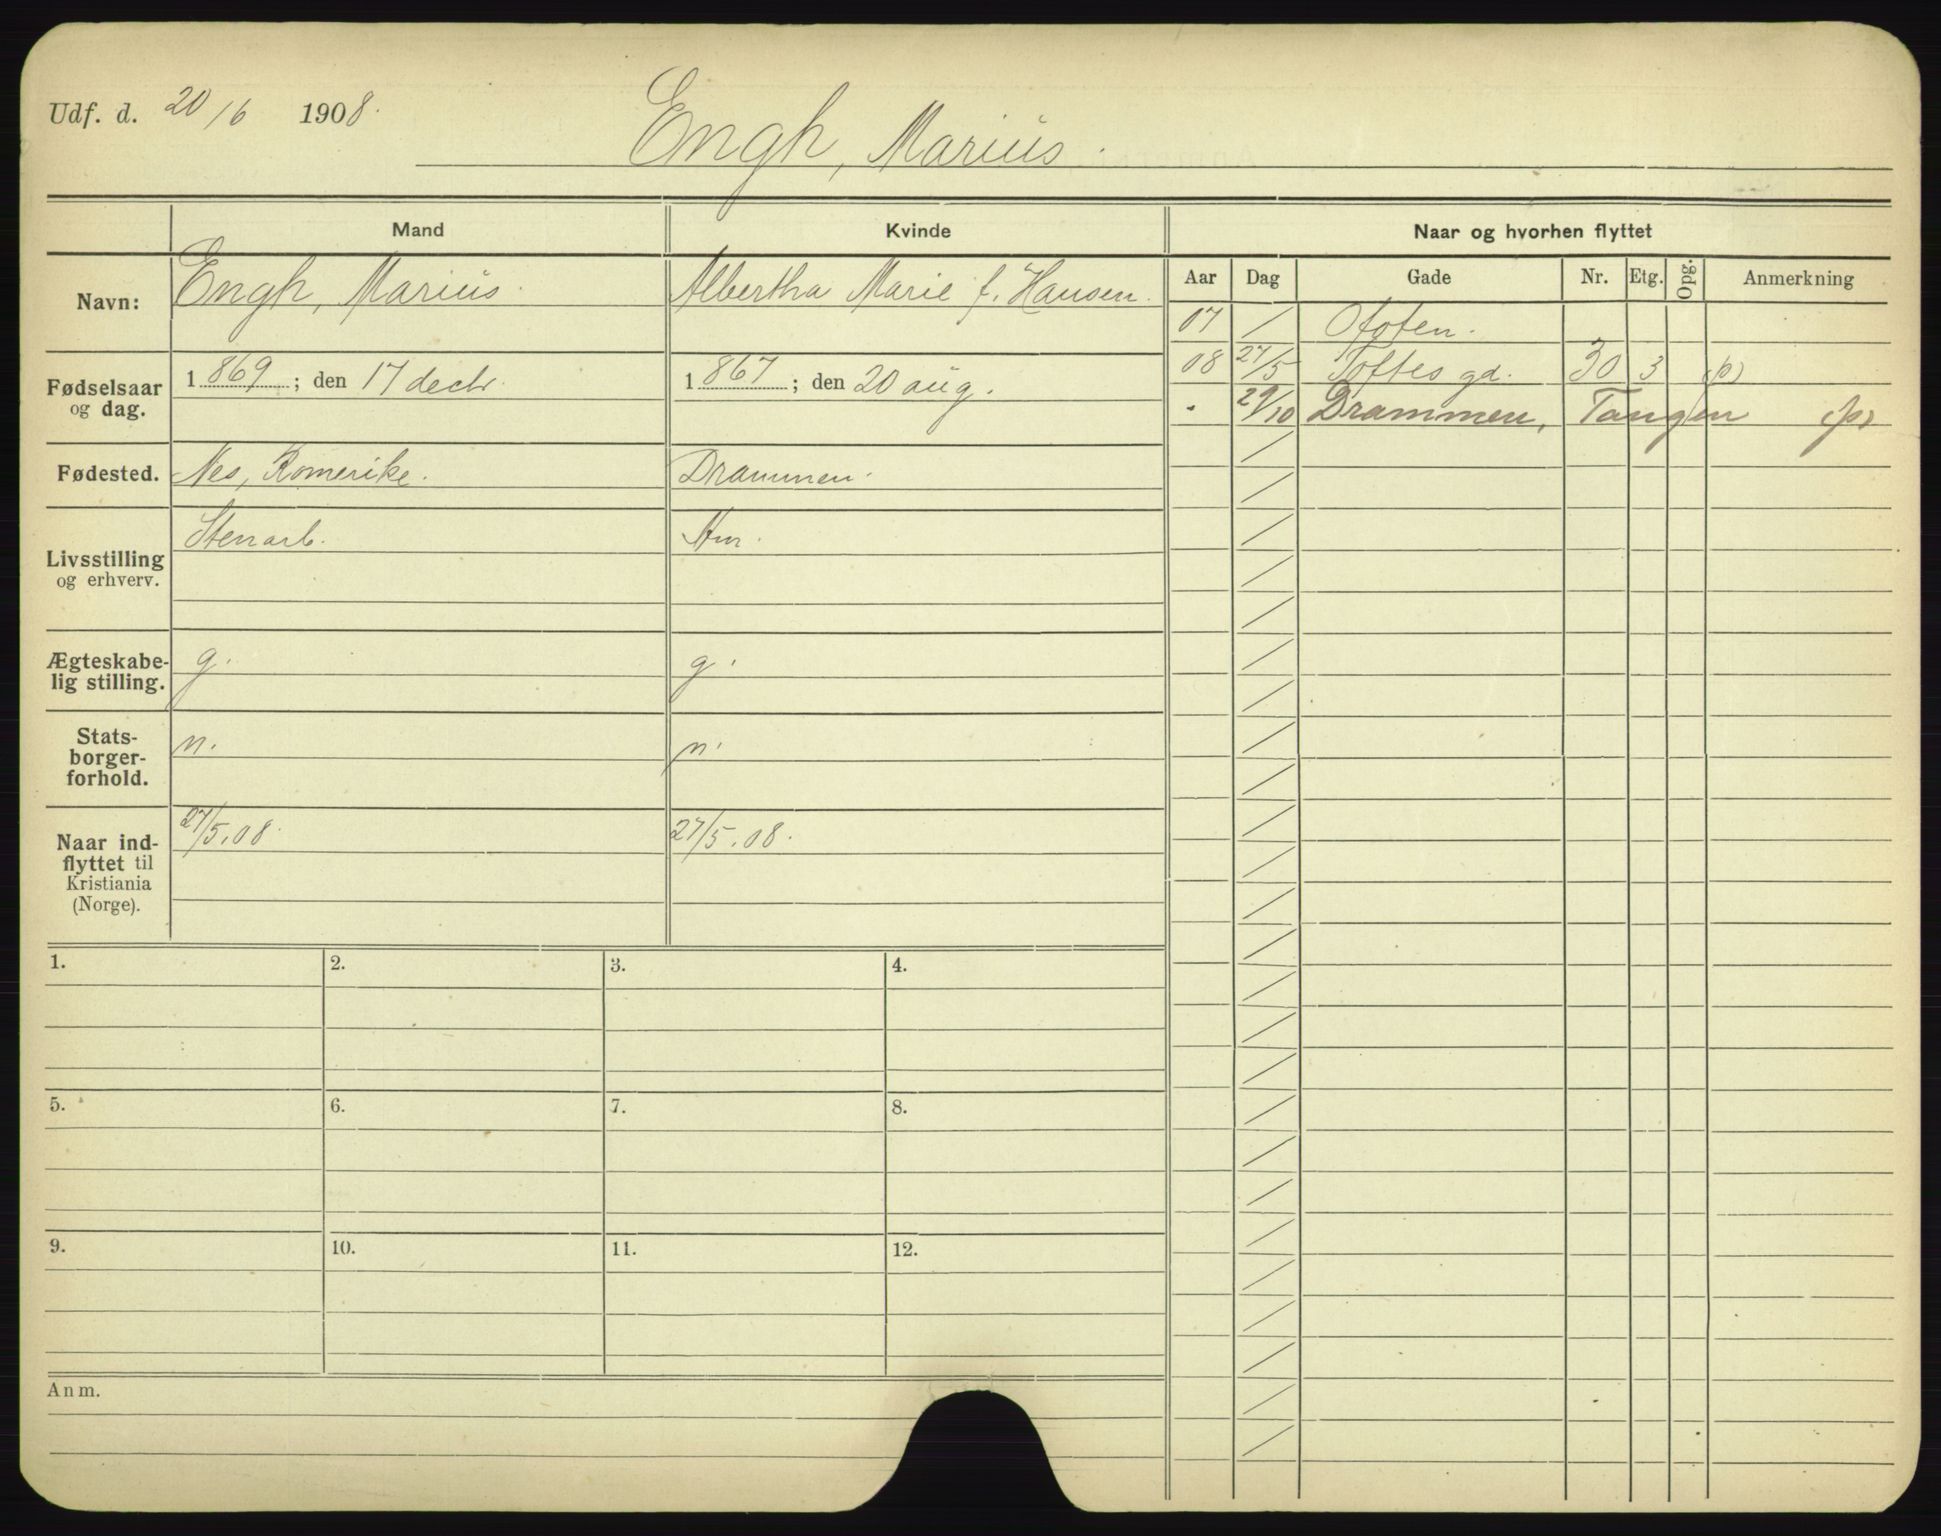 Udf. d. 20/6 1908.
Engh, Marius.
Mand Kvinde Naar og hvorhen flyttet
Aar Dag Gade Nr. Etg. Opg. Anmerkning
Navn: Engh, Marius. Albertha Marie f. Hansen.
07 / Ofoten.
08 27/5 Toftes gd. 30 3 (p)
. 29/10 Drammen, Tangen (p)
Fødselsaar og dag. 1869; den 17 decbr. 1867; den 20 aug.
Fødested. Nes, Romerike. Drammen.
Livsstilling og erhverv. Stenarb. Hm.
Ægteskabe-
lig stilling. g. g.
Stats-
borger-
forhold. n. n.
Naar ind-
flyttet til
Kristiania
(Norge). 27/5.08. 27/5.08.
1. 2. 3. 4.
5. 6. 7. 8.
9. 10. 11. 12.
Anm.